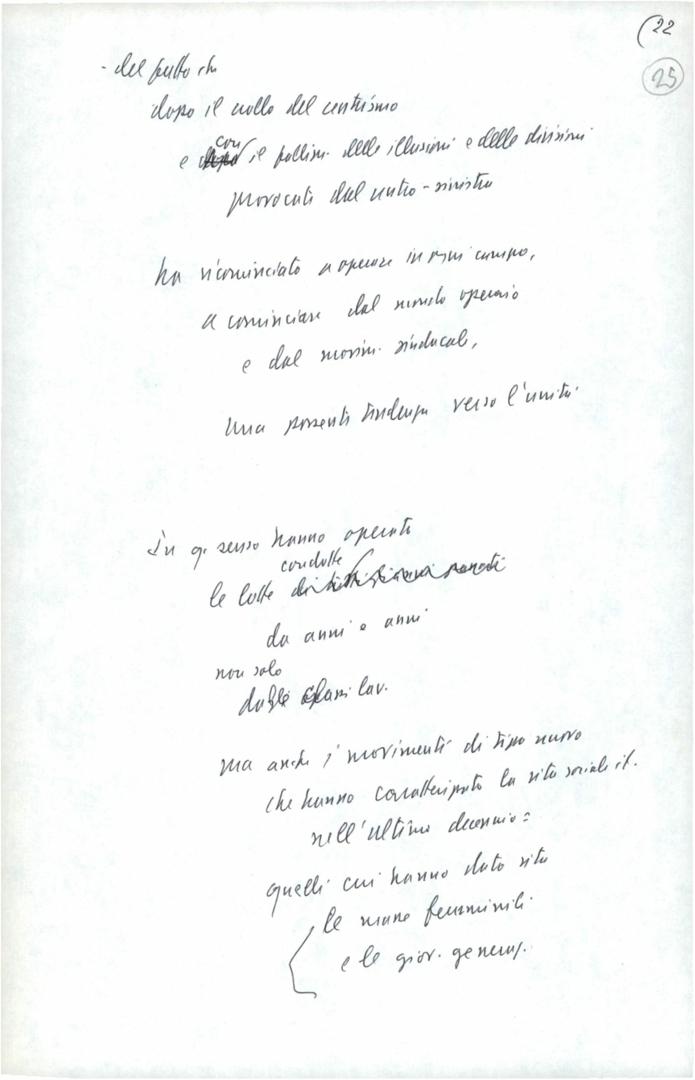 (22
25
- del fatto che
dopo il crollo del centrismo
con
e dopo il fallim. delle illusioni e delle divisioni
provocate dal centro-sinistra
ha ricominciato a operare in ogni campo,
a cominciare dal mondo operaio
e dal movim. sindacale,
una possente tendenza verso l'unità.
In q. senso hanno operato
condotte
le lotte
da anni e anni
non solo
dalle classi lav.
ma anche i movimenti di tipo nuovo
che hanno caratterizzato la vita sociale it.
nell'ultimo decennio:
quelli cui hanno dato vita
le masse femminili
e le giov. generaz.